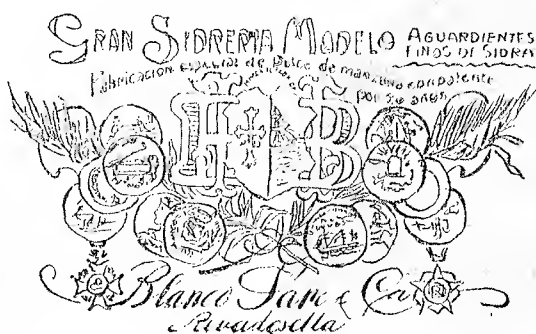 GRAN SIDRERIA MODELO AGUARDIENTES FINOS DE SIDRA
Fabricación especial de Dulce de manzana con patente
por 50 años
H B
Blanco Sanc & Ca
Rivadesella